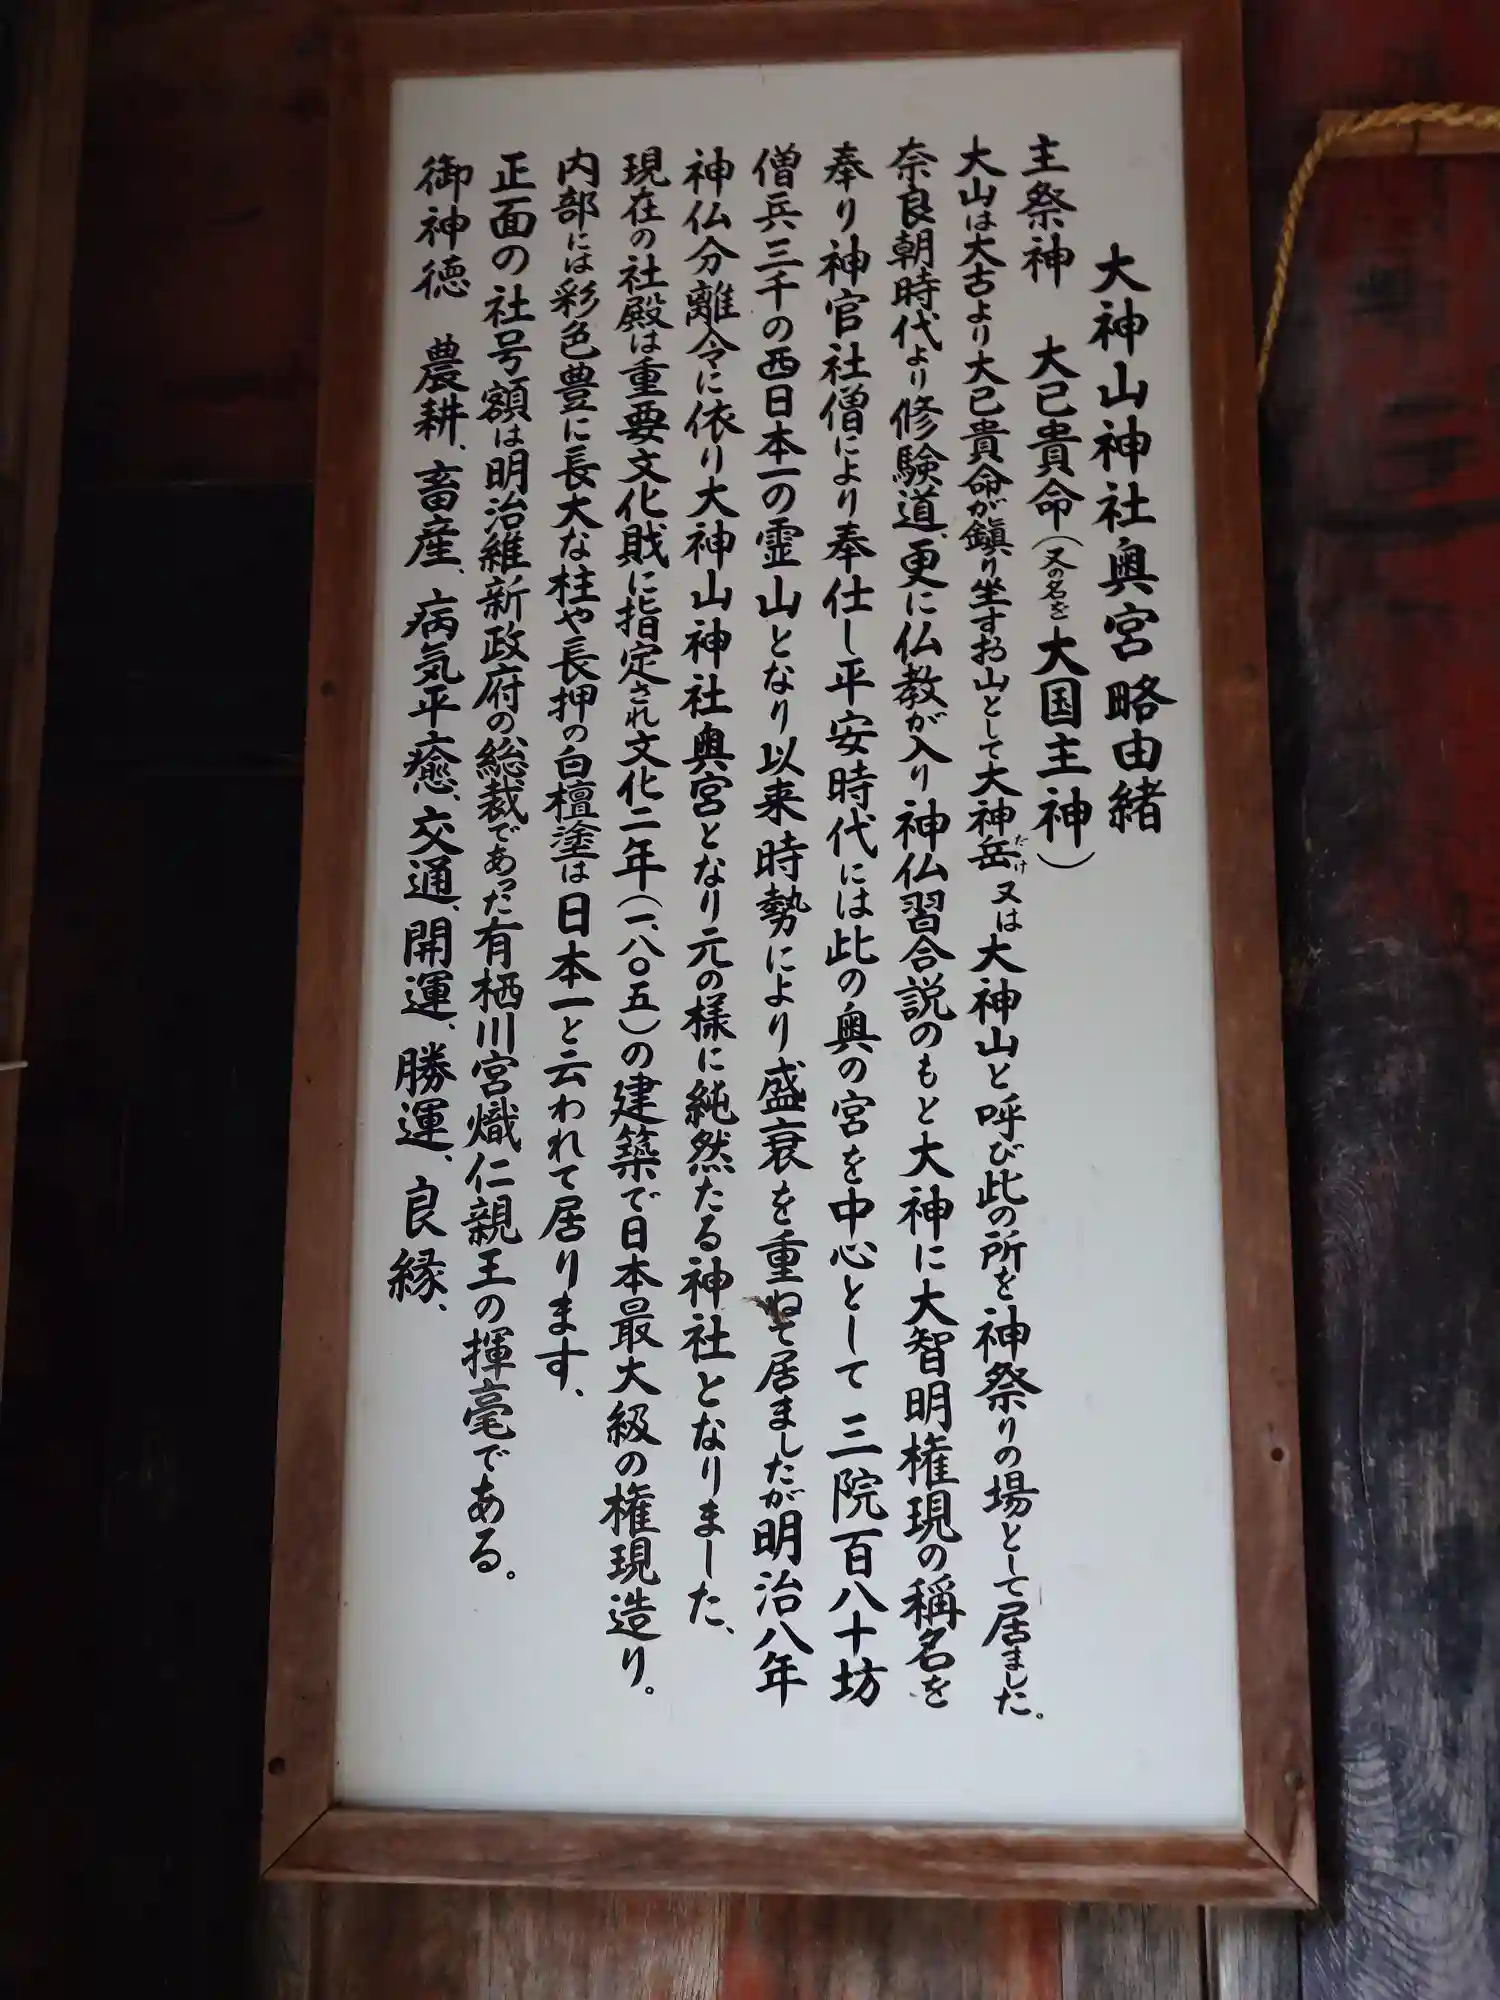 大神山神社奥宮略由緒
主祭神 大己貴命(又の名を大国主神)
大山は大古より大己貴命が鎮り坐すお山として大神岳だけ又は大神山と呼び此の所を神祭りの場として居ました。
奈良朝時代より修験道、更に仏教が入り神仏習合説のもと大神に大智明権現の稱名を
奉り神官社僧により奉仕し平安時代には此の奥の宮を中心として三院百八十坊
僧兵三千の西日本一の霊山となり以来時勢により盛衰を重ねて居ましたが明治八年
神仏分離令に依り大神山神社奥宮となり元の様に純然たる神社となりました、
現在の社殿は重要文化財に指定され文化二年(一、八〇五)の建築で日本最大級の権現造り。
内部には彩色豊に長大な柱や長押の白檀塗は日本一と云われて居ります、
正面の社号額は明治維新政府の総裁であった有栖川宮熾仁親王の揮毫である。
御神徳 農耕、畜産、病気平癒、交通、開運、勝運、良縁、